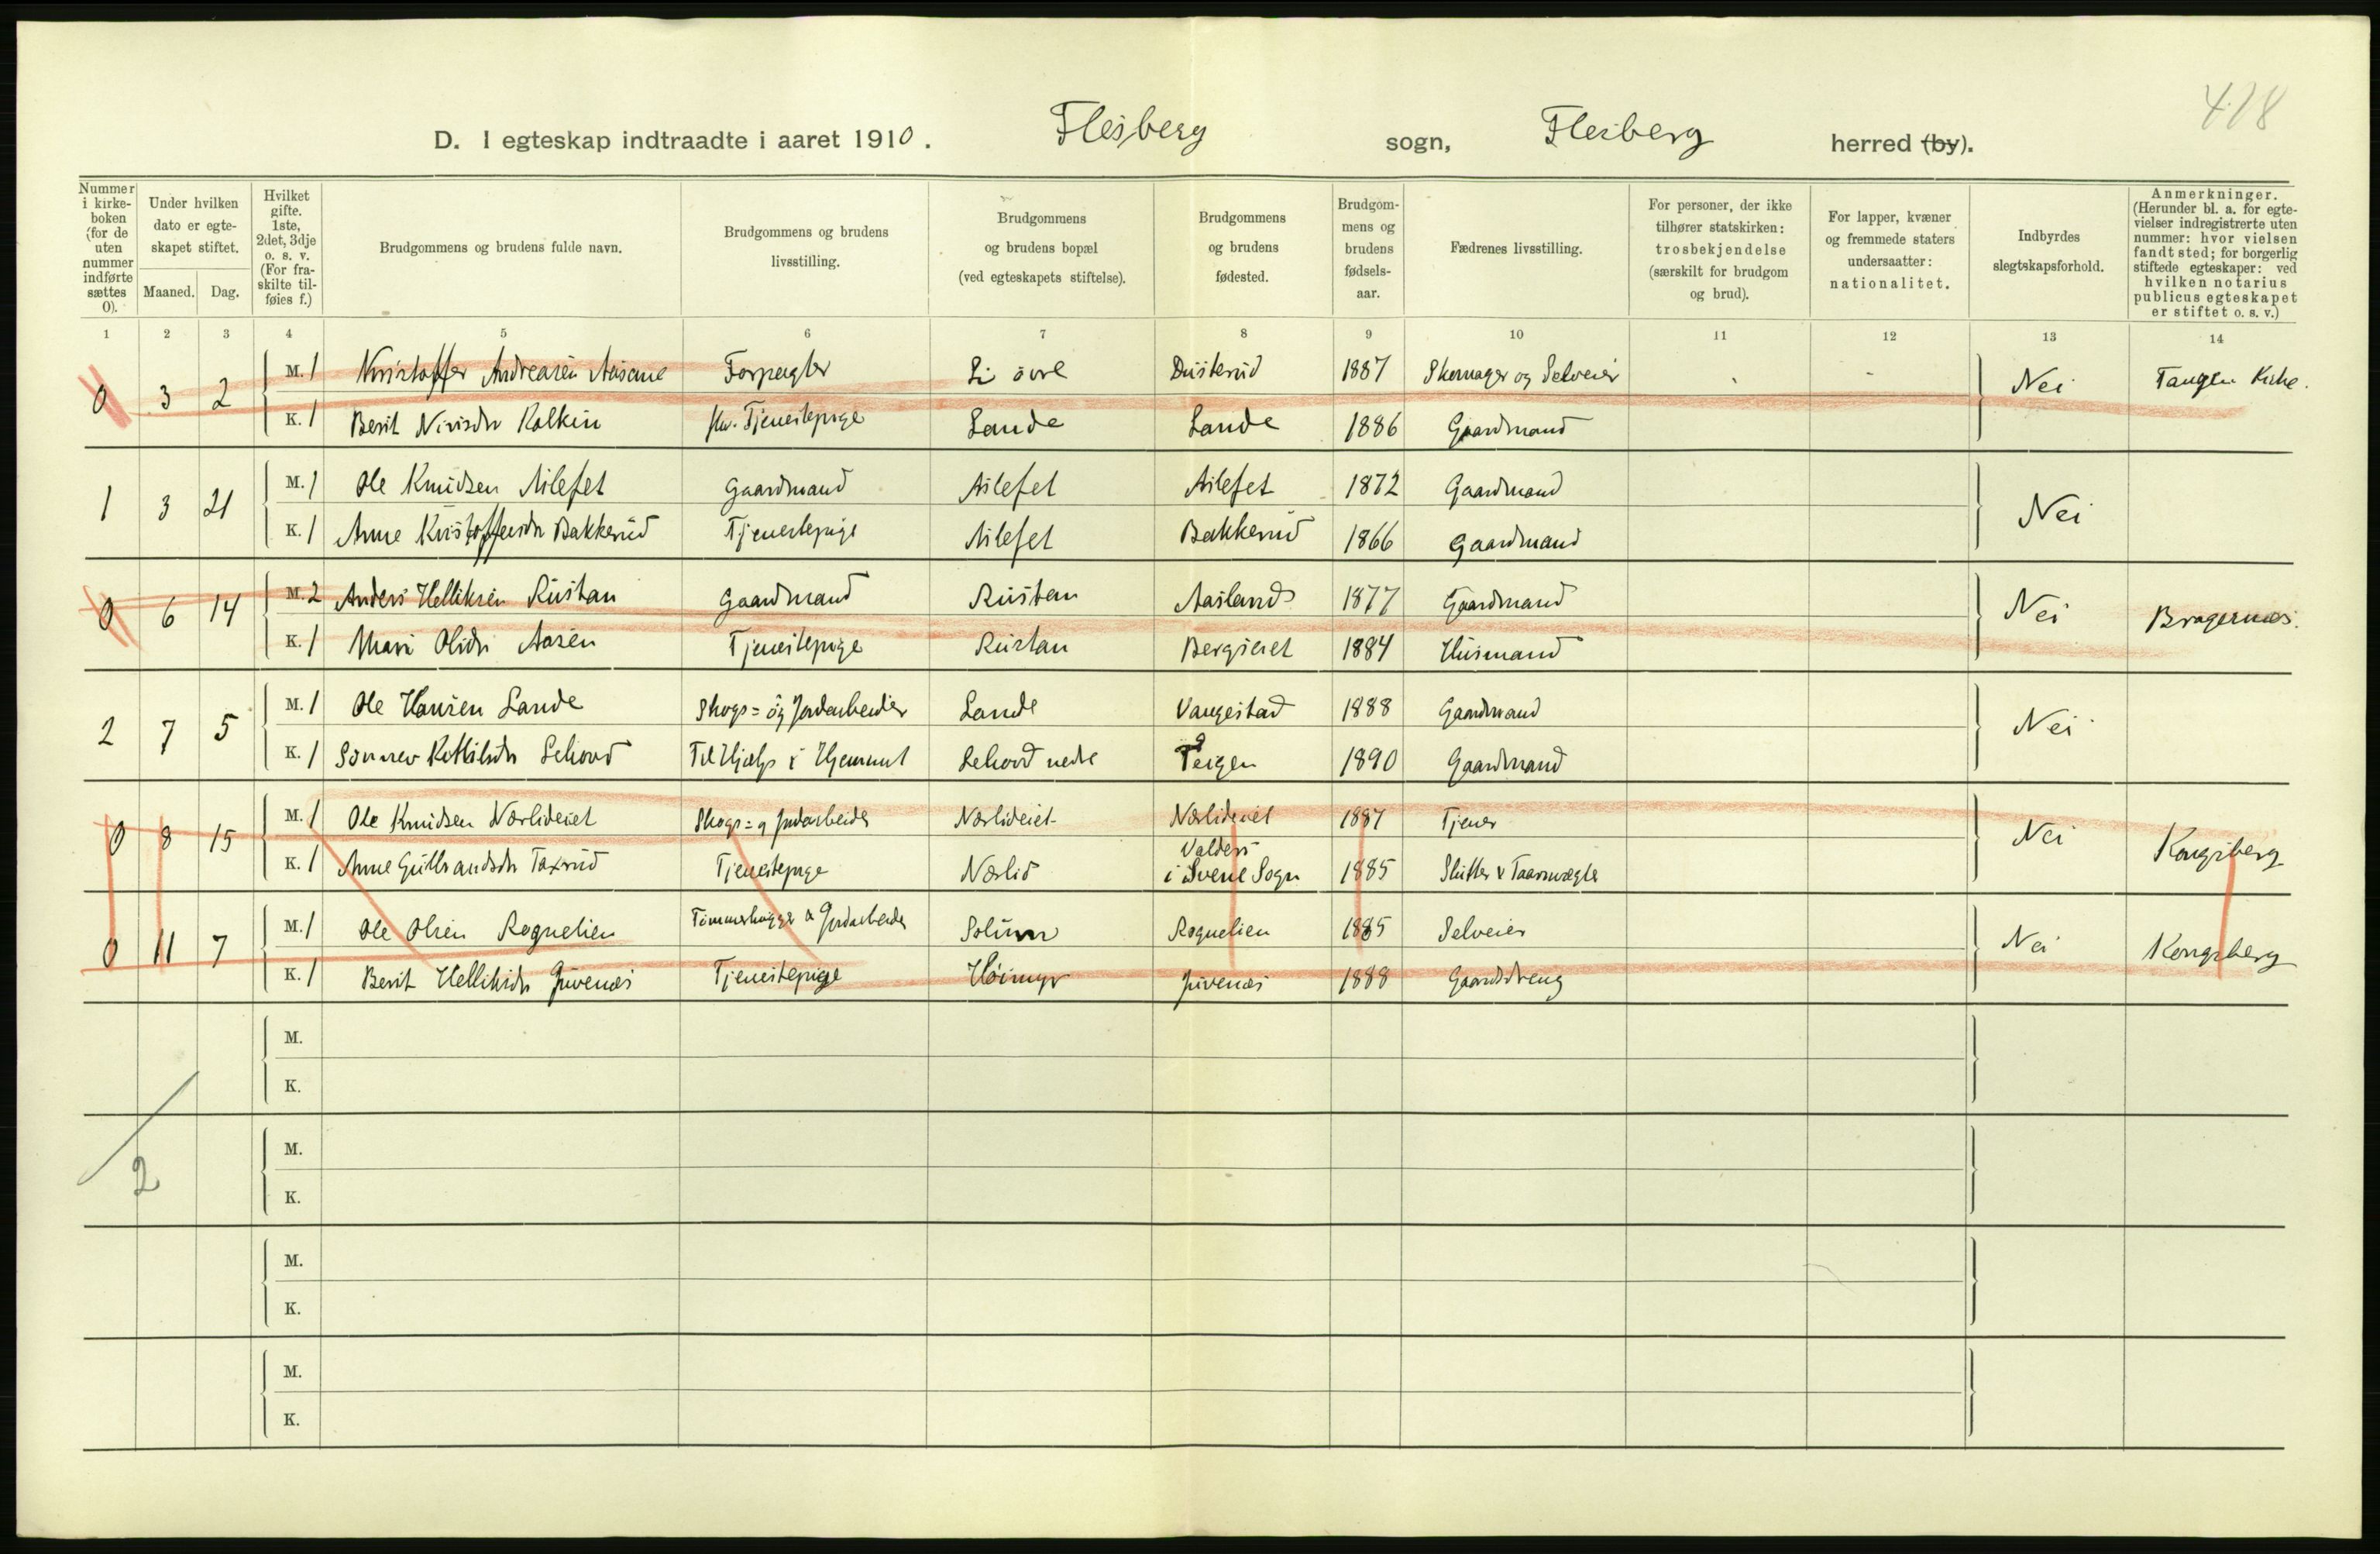 418
D. I egteskap indtraadte i aaret 1910. Flesberg sogn, Flesberg herred (by).
Nummer i kirkeboken (for de uten nummer indførte sættes 0).
Under hvilken dato er egteskapet stiftet.
Maaned. Dag.
Hvilket gifte. 1ste, 2det, 3dje o. s. v. (For fraskilte tilføies f.)
Brudgommens og brudens fulde navn.
Brudgommens og brudens livsstilling.
Brudgommens og brudens bopæl (ved egteskapets stiftelse).
Brudgommens og brudens fødested.
Brudgommens og brudens fødselsaar.
Fædrenes livsstilling.
For personer, der ikke tilhører statskirken: trosbekjendelse (særskilt for brudgom og brud).
For lapper, kvæner og fremmede staters undersaatter: nationalitet.
Indbyrdes slegtskapsforhold.
Anmerkninger. (Herunder bl. a. for egtevielser indregistrerte uten nummer: hvor vielsen fandt sted; for borgerlig stiftede egteskaper: ved hvilken notarius publicus egteskapet er stiftet o. s. v.)
1 2 3 4 5 6 7 8 9 10 11 12 13 14
0 3 2 M. 1 Kristoffer Andreasen Aasane Forpagter Li övre Düsterud 1887 Skomager og Selveier Nei Tangen Kirke.
K. 1 Berit Nirisdr Kolkin Tjenestepige Lande Lande 1886 Gaardmand
1 3 21 M. 1 Ole Knudsen Aslefet Gaardmand Aslefet Aslefet 1872 Gaardmand Nei
K. 1 Anne Kristoffersdr Bakkerud Tjenestepige Aslefet Bakkerud 1866 Gaardmand
0 6 14 M. 2 Anders Helliksen Rustan Gaardmand Rustan Aasland 1877 Gaardmand Nei Bragernæs.
K. 1 Mari Olsdr Aasen Tjenestepige Rustan Bergseiet 1884 Husmand
2 7 5 M. 1 Ole Hansen Lande Skogs= og Jordarbeider Lande Vangestad 1888 Gaardmand Nei
K. 1 Sönnev Kittilsdr Lehovd Til Hjælp i Hjemmet Lehovd nedre Teigen 1890 Gaardmand
0 8 15 M. 1 Ole Knudsen Nørlideiet Skogs= og Jordarbeider Nørlideiet Nørlideiet 1887 Tjener Nei Kongsberg
K. 1 Anne Gulbrandsdr Taxrud Tjenestepige Nørlid Valders i Svene Sogn 1885 Slitter & Taarnvægter
0 11 7 M. 1 Ole Olsen Roguelien Tømmerhugger & Jordarbeider Solum Roguelien 1885 Selveier Nei Kongsberg
K. 1 Berit Helliksdr Juvenæs Tjenestepige Høimyr Juvenæs 1888 Gaardsdreng
M.
K.
2
M.
K.
M.
K.
M.
K.